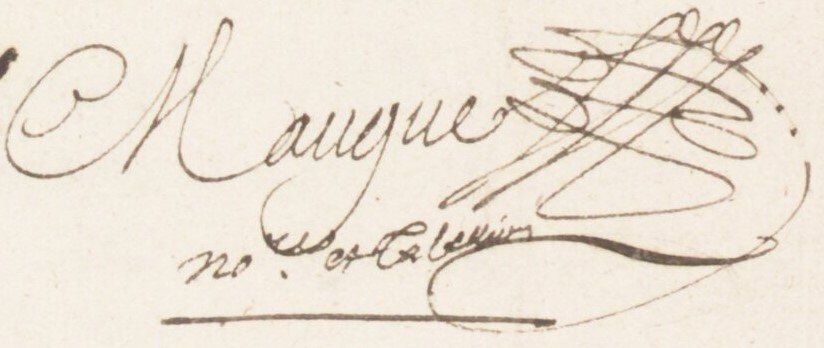 CMaugue
no.re et Tabellion